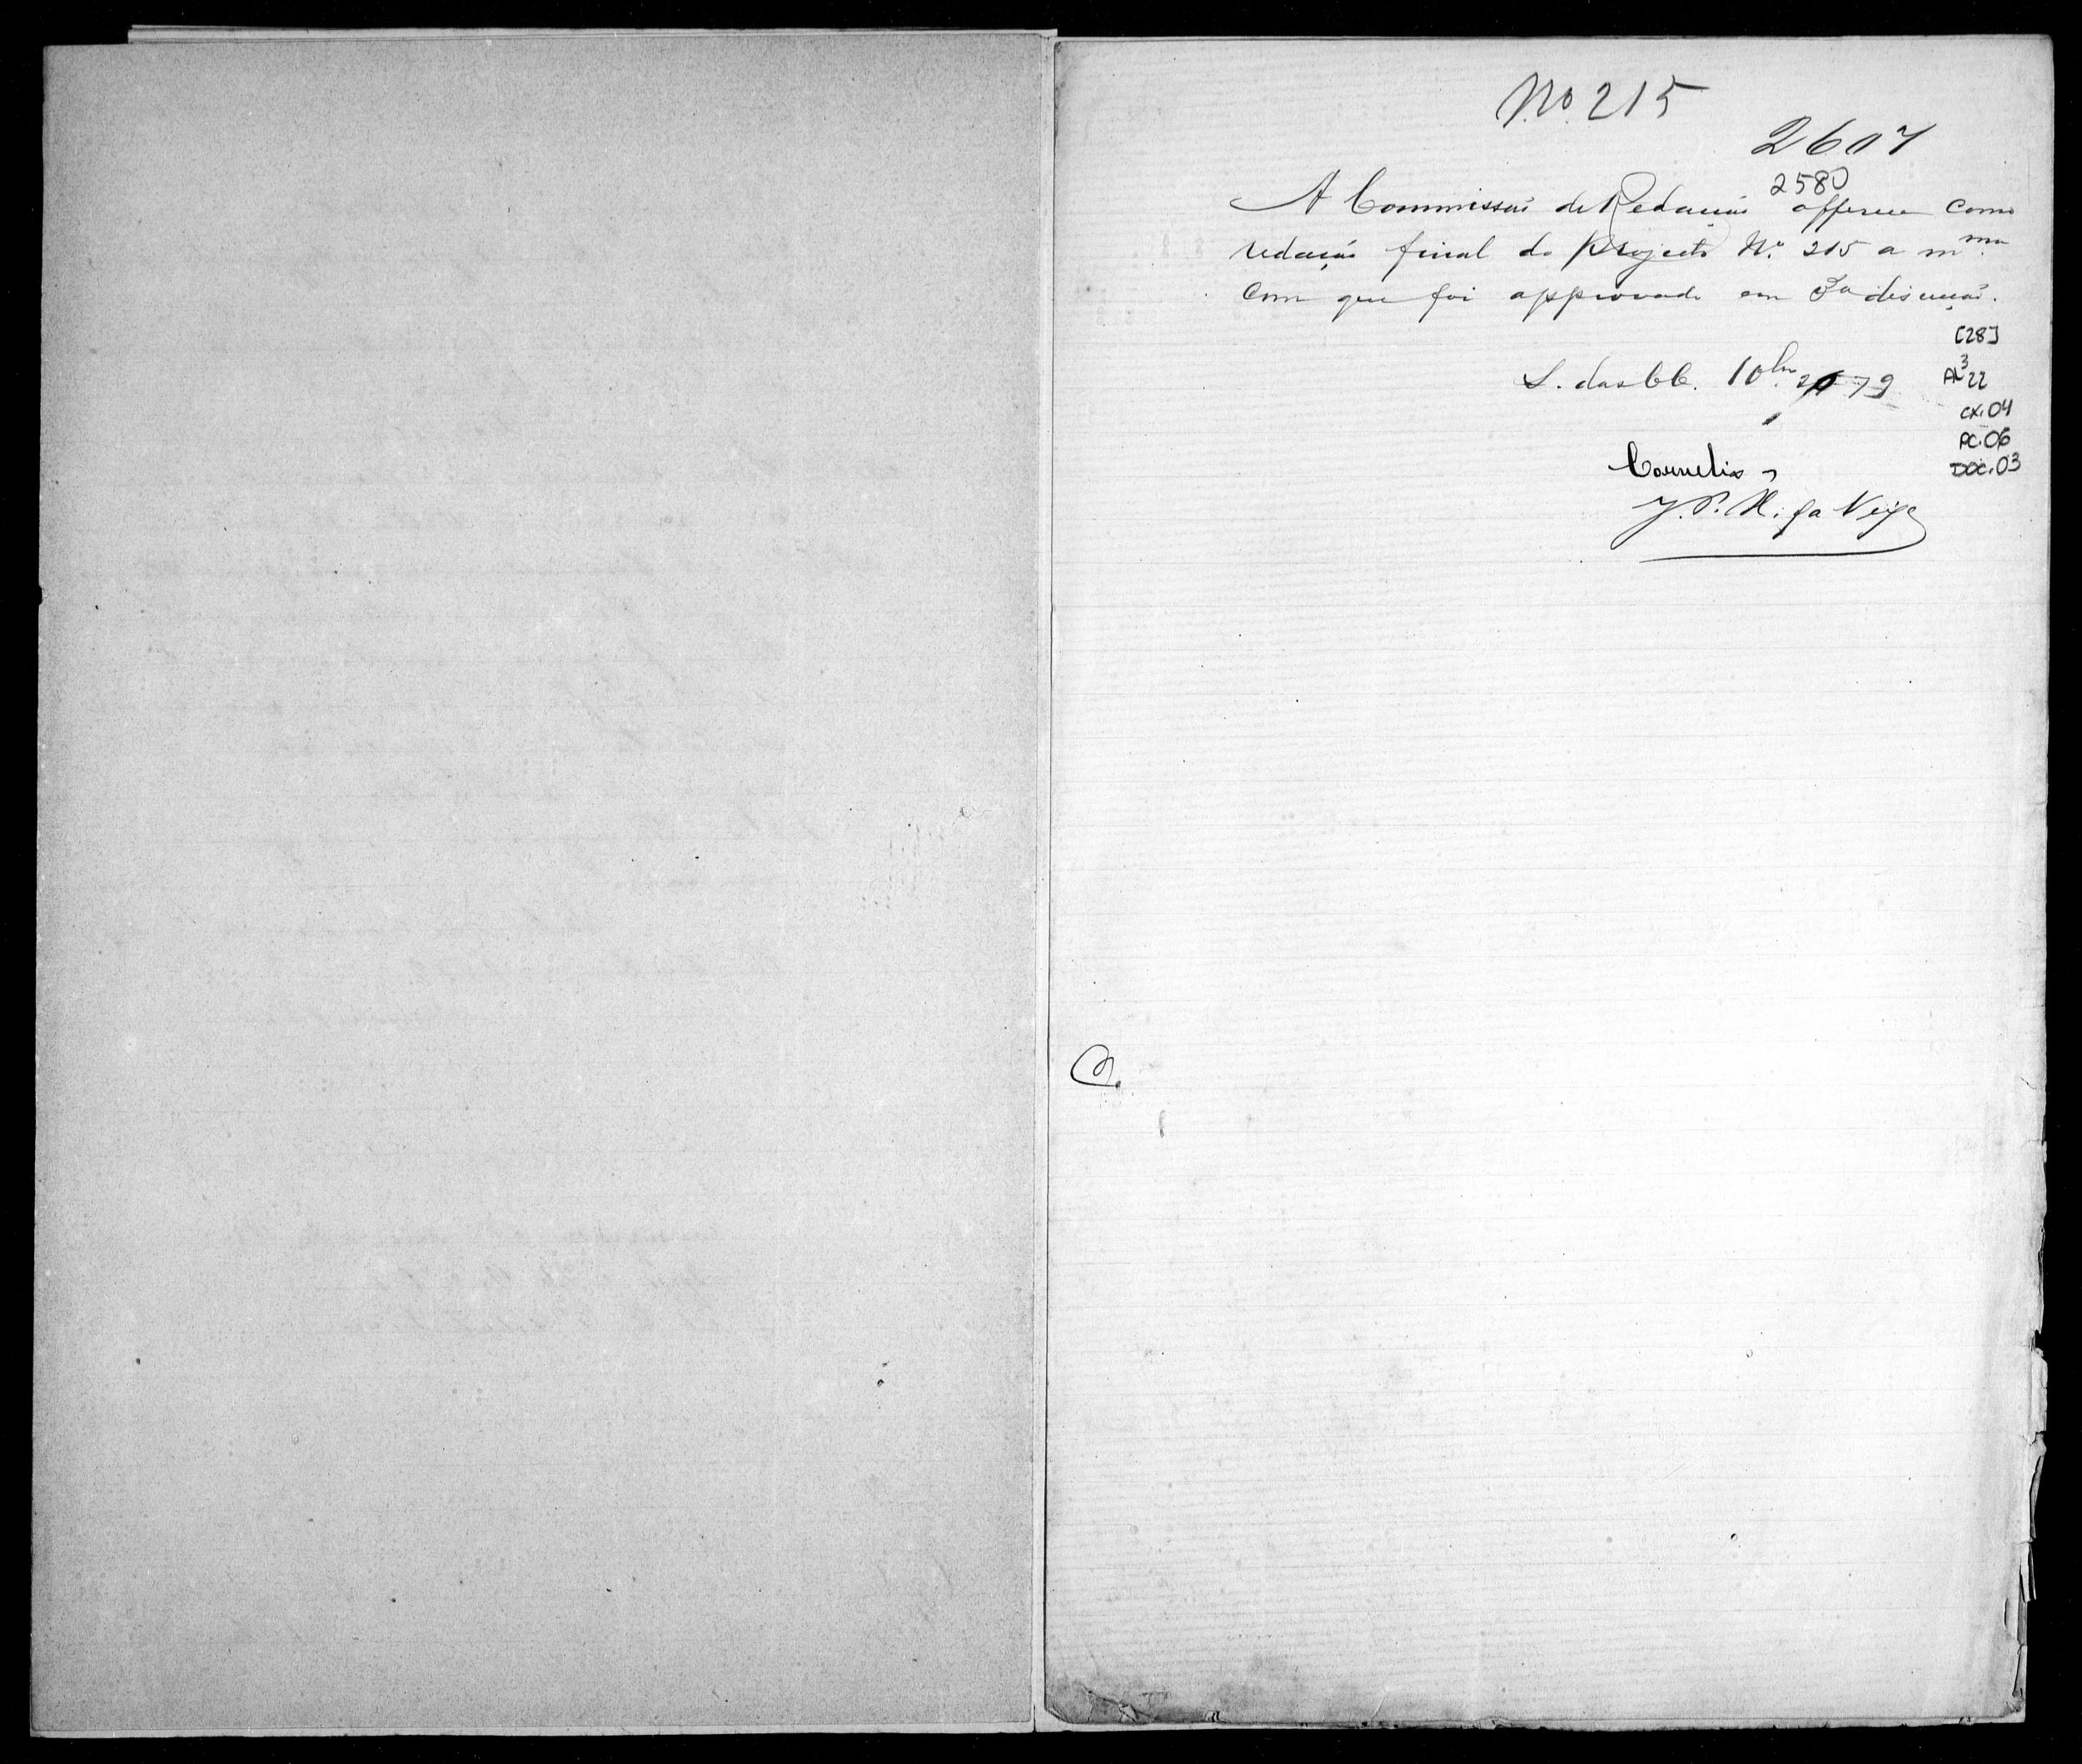 No. 215
2607
2580
A Commissão de Redacção offerece como
redacção final do Projecto N.º 215 a m.ma
com que foi approvado em 3a discussão.
[28]
S. das CC. 10bro 20 79
AL 3 22
cx.04
PC.06
DOC.03
Cornelio
J. P. X. da Veiga